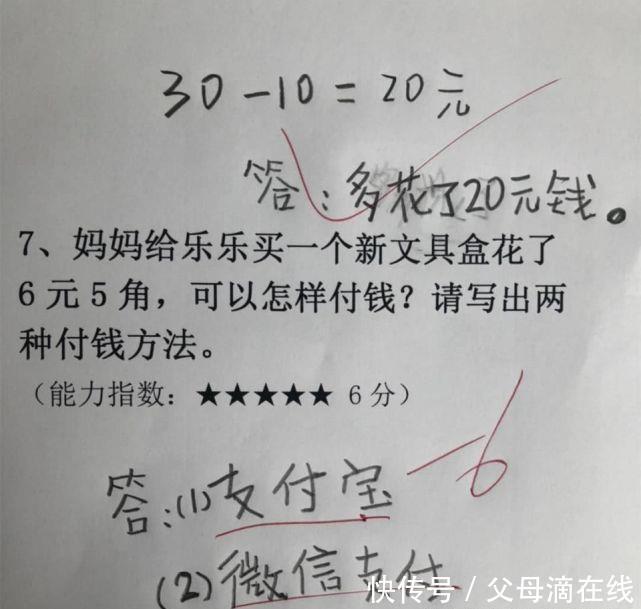 30-10=20元
答:多花了20元钱。
7、妈妈给乐乐买一个新文具盒花了
6元5角,可以怎样付钱?请写出两
种付钱方法。
(能力指数:★★★★★ 6分)
-6
答:(1)支付宝
(2)微信支付
快传号/父母滴在线